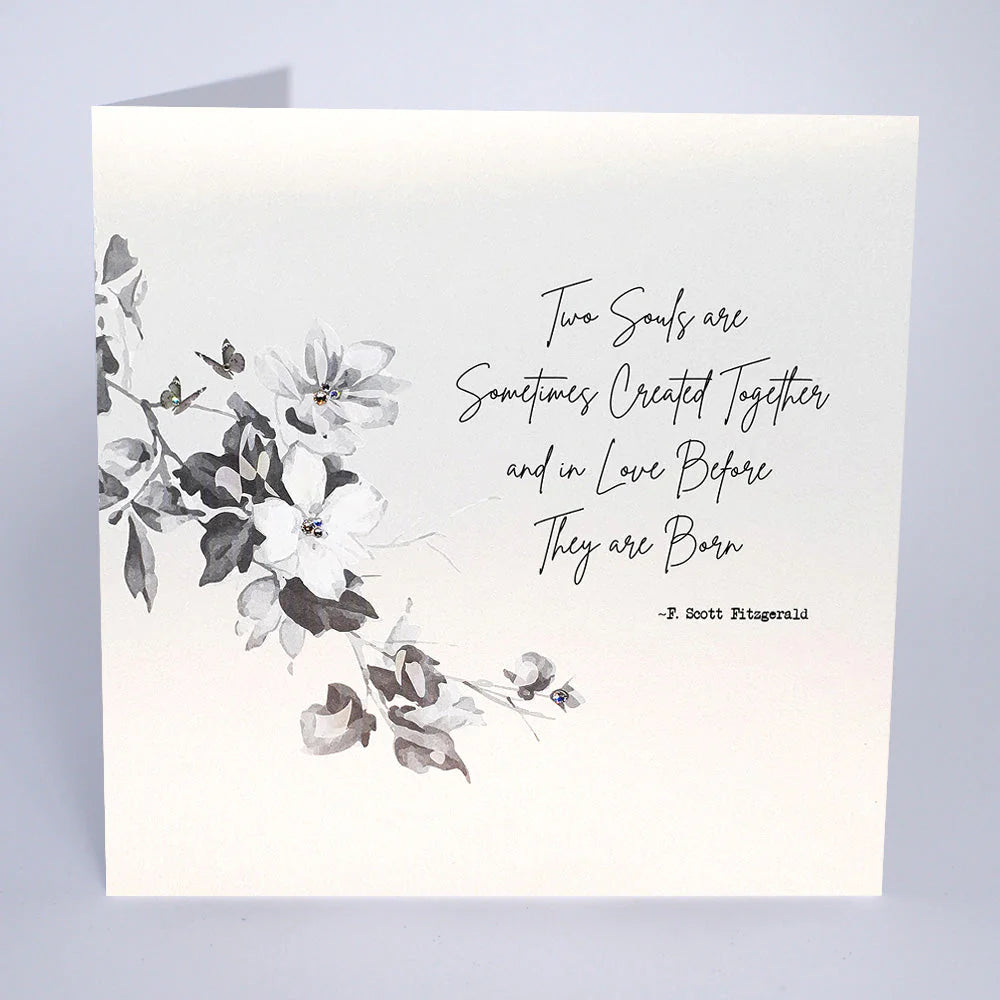 Two Souls are
Sometimes Created Together
and in Love Before
They are Born
~F. Scott Fitzgerald